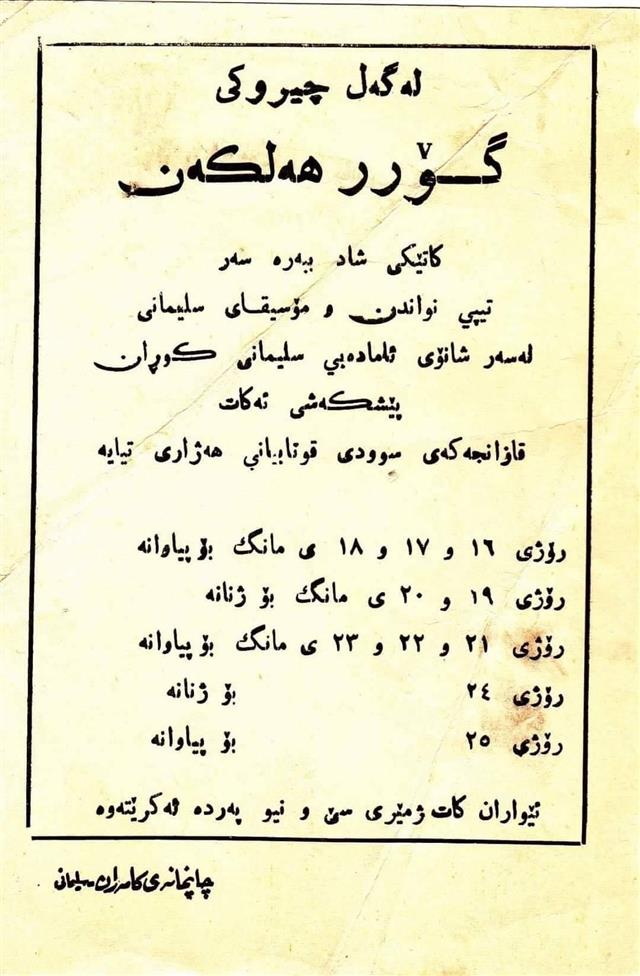 لەگەل چیروکی
گۆرر هەلکەن
کاتێکی شاد ببەرە سەر
تیپي نواندن و مۆسیقای سلیمانی
لەسەر شانۆی ئامادەبي سلیمانی کوڕان
پێشکەشی ئەکات
قازانجەکەی سوودی قوتابیاني هەژاری تیایە
رۆژی ١٦ و ١٧ و ١٨ ی مانگ بۆ پیاوانە
رۆژی ١٩ و ٢٠ ی مانگ بۆ ژنانە
رۆژی ٢١ و ٢٢ و ٢٣ ی مانگ بۆ پیاوانە
رۆژی ٢٤ بۆ ژنانە
رۆژی ٢٥ بۆ پیاوانە
ئێواران کات ژمێری سێ و نیو پەردە ئەکرێتەوە
چاپخانەی کامەران - سلیمانی